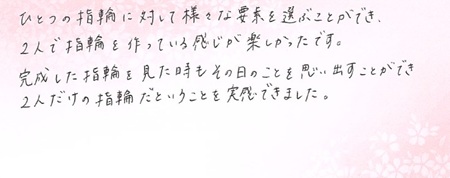 ひとつの指輪に対して様々な要素を選ぶことができ、
2人で指輪を作っている感じが楽しかったです。
完成した指輪を見た時もその日のことを思い出すことができ
2人だけの指輪だということを実感できました。